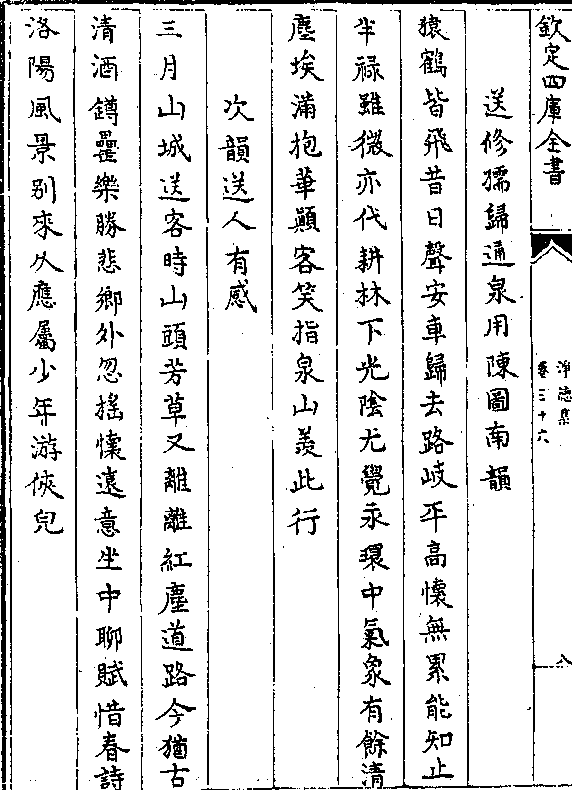 欽定四庫全書
淨德集
卷三十六
八
送修孺歸通泉用陳圖南韻
猿鶴皆飛昔日聲安車歸去路岐平高懷無累能知止
半祿雖微亦代耕林下光陰尤覺永環中氣象有餘清
塵埃滿抱華顛客笑指泉山羨此行
次韻送人有感
三月山城送客時山頭芳草又離離紅塵道路今猶古
清酒鐏罍樂勝悲鄉外忽搖懷遠意坐中聊賦惜春詩
洛陽風景別來久應屬少年游俠兒